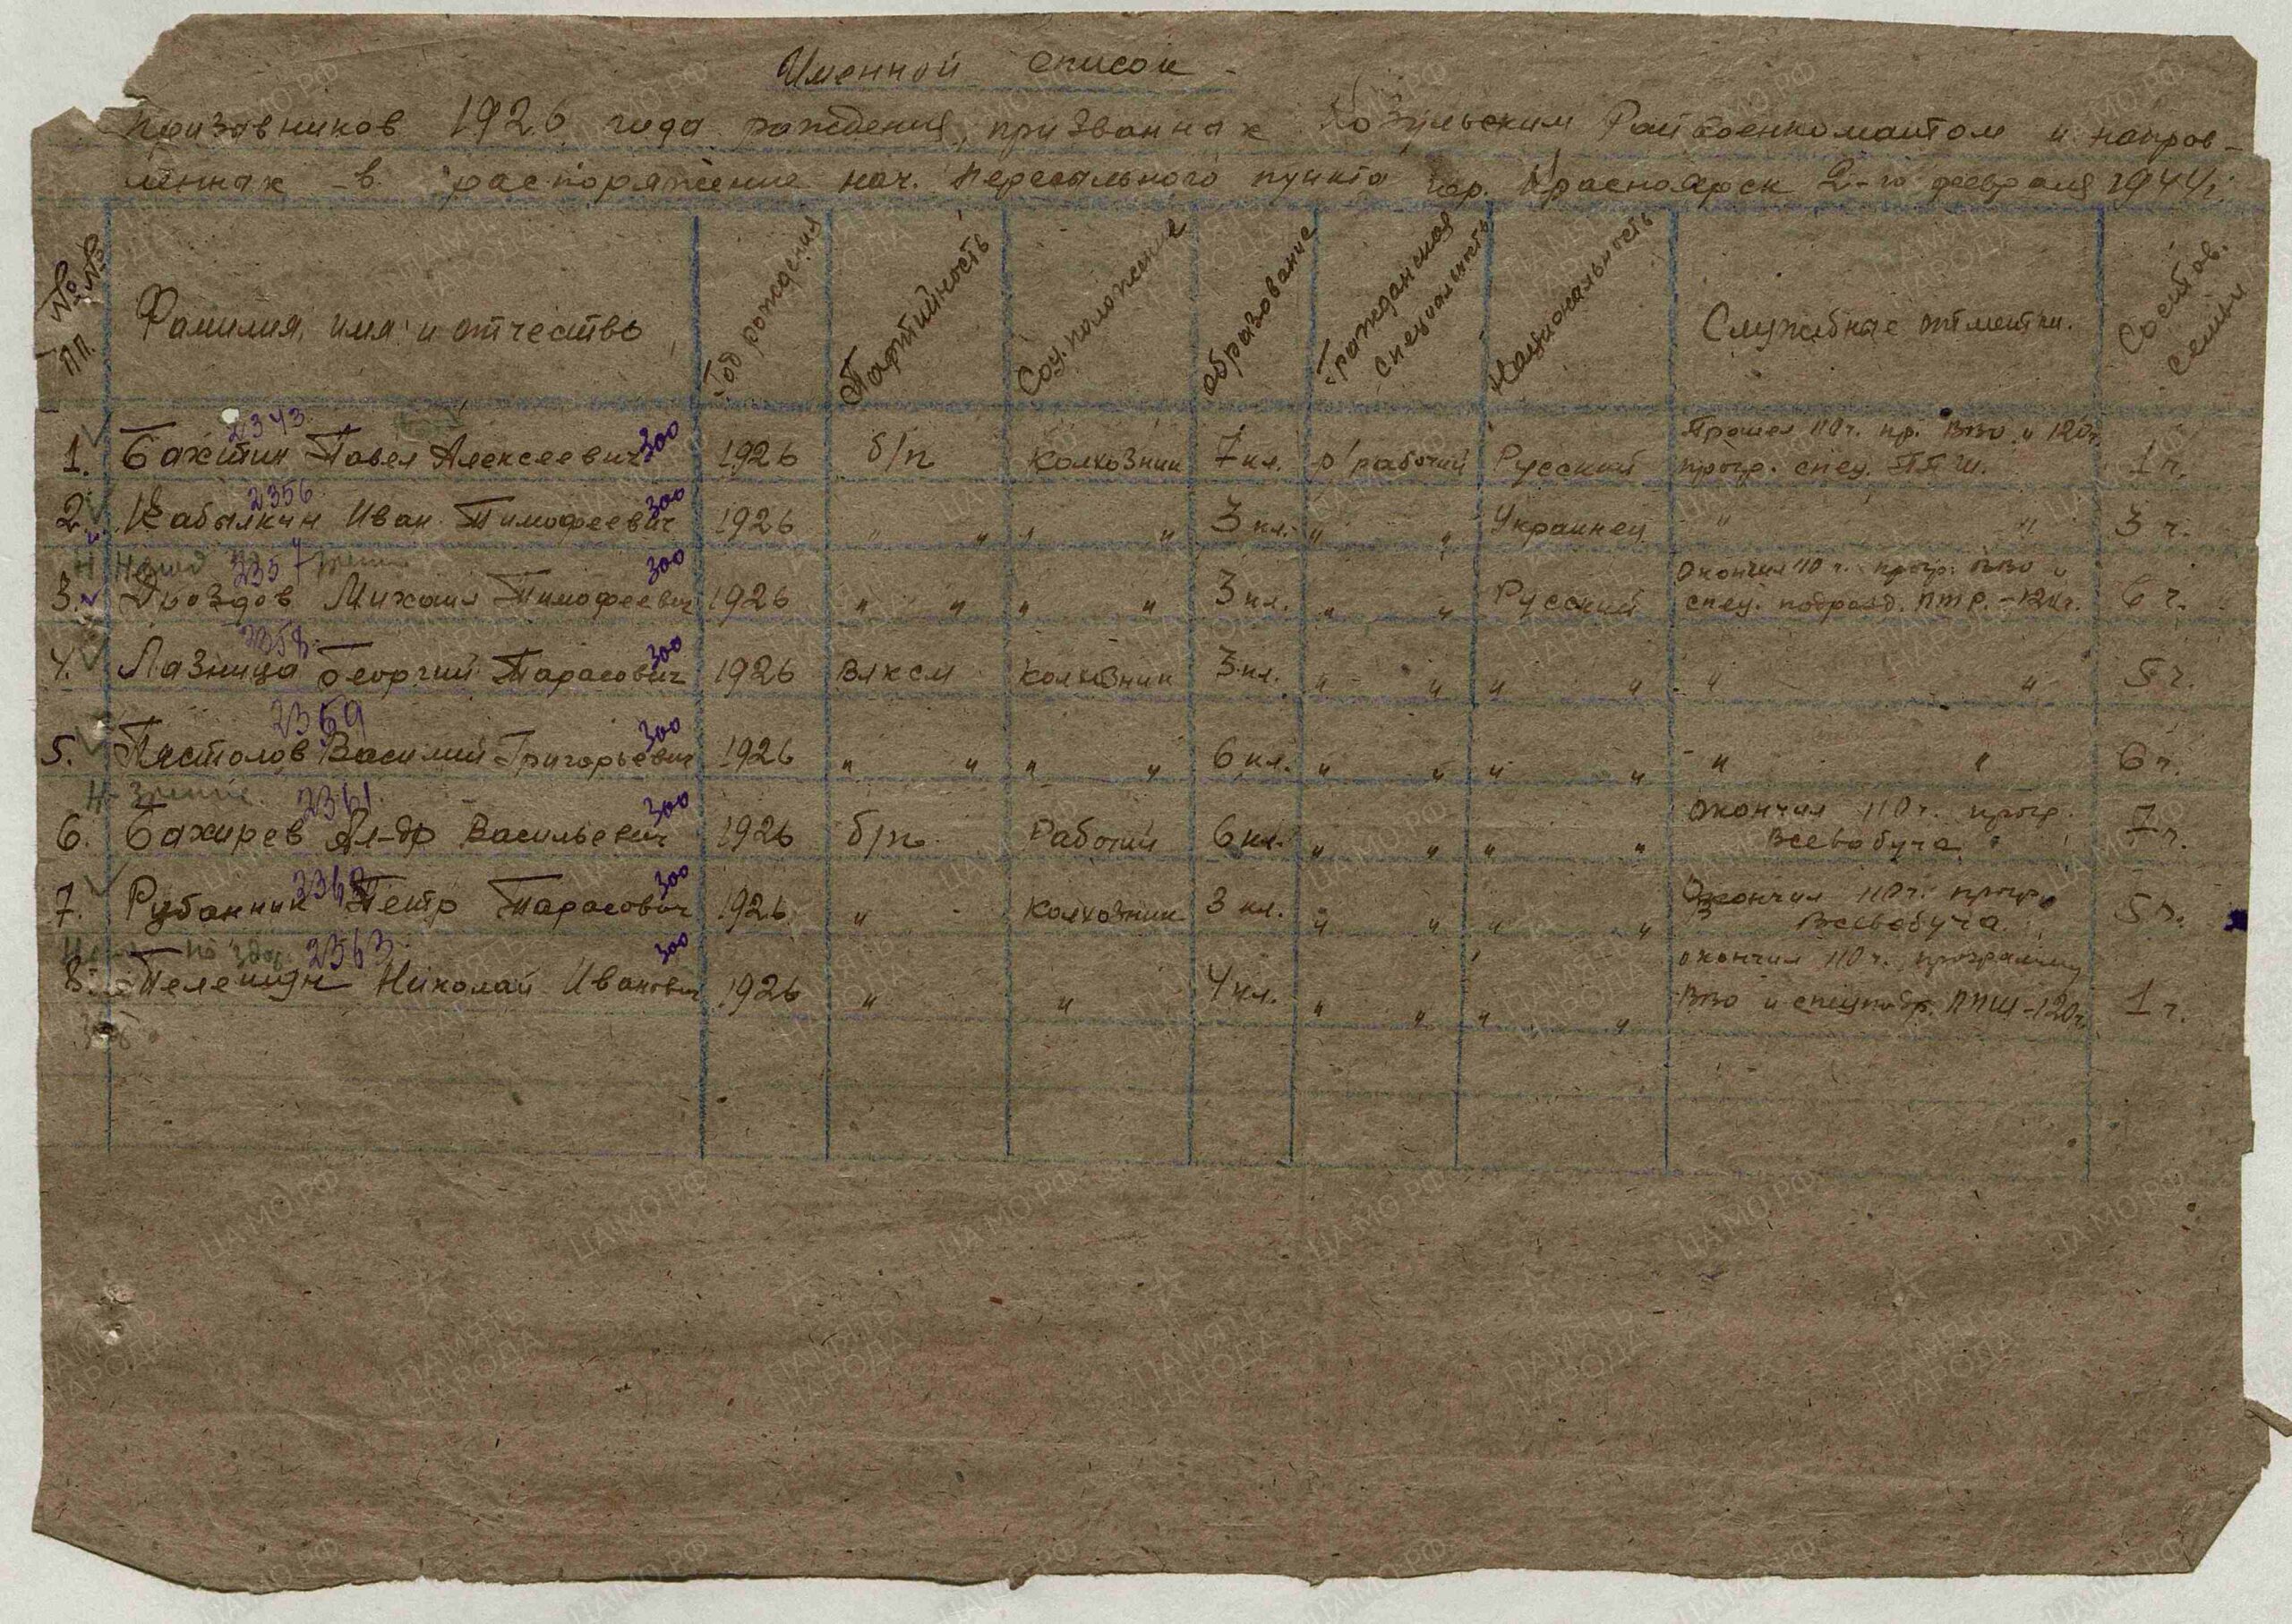 Именной список
призовников 1926 года рождения, призванных Козульским Райвоенкоматом и направ-
ленных в распоряжение нач. Пересыльного пункта гор. Красноярск 2-го февраля 1944 г.
№№ пп. Фамилия, имя и отчество Год рождения Партийность Соц. положение образование Гражданская специальность Национальность Служебные отметки. Состав. семьи
2343
1. Бахтин Павел Алексеевич 300 1926 б/п колхозник 7 кл. р/рабочий Русский Прошел 110 ч. пр. Вво и 120 ч. прогр. спец. ППШ. 1 ч.
2356
2. Кабылкин Иван Тимофеевич 300 1926 " " " " 3 кл. " " Украинец " " 3 ч.
2357
3. Дроздов Михаил Тимофеевич 300 1926 " " " " 3 кл. " " Русский Окончил 110 ч. прогр. Вво и спец. подразд. ПТР. - 120 ч. 6 ч.
2358
4. Лазница Георгий Тарасович 300 1926 ВЛКСМ колхозник 3 кл. " " " " " " 5 ч.
2359
5. Пистолов Василий Григорьевич 300 1926 " " " " 6 кл. " " " " " " 6 ч.
2361
6. Бахирев Ал-др Васильевич 300 1926 б/п Рабочий 6 кл. " " " " Окончил 110 ч. прогр. Всевобуча 7 ч.
2362
7. Рубанник Петр Тарасович 300 1926 " колхозник 3 кл. " " " " Окончил 110 ч. прогр. Всевобуча. 5 ч.
по здор. 2363
8. Телепшин Николай Иванович 300 1926 " " 4 кл. " " " " окончил 110 ч. программу Вво и спецподр. ППШ - 120 ч. 1 ч.